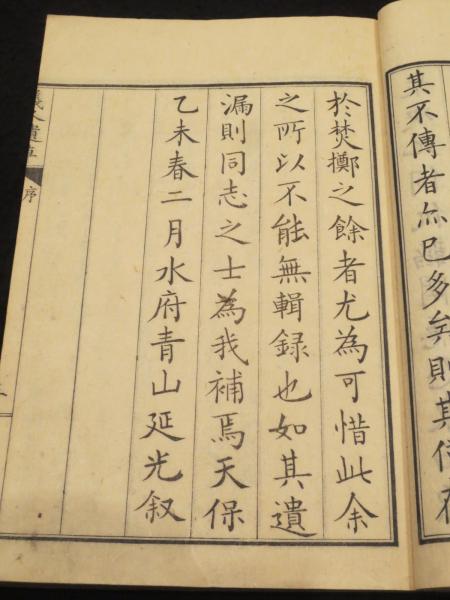 其不傳者亦已多矣則其
於焚擲之餘者尤為可惜此余
之所以不能無輯録也如其遺
漏則同志之士為我補焉天保
乙未春二月水府青山延光叙
序